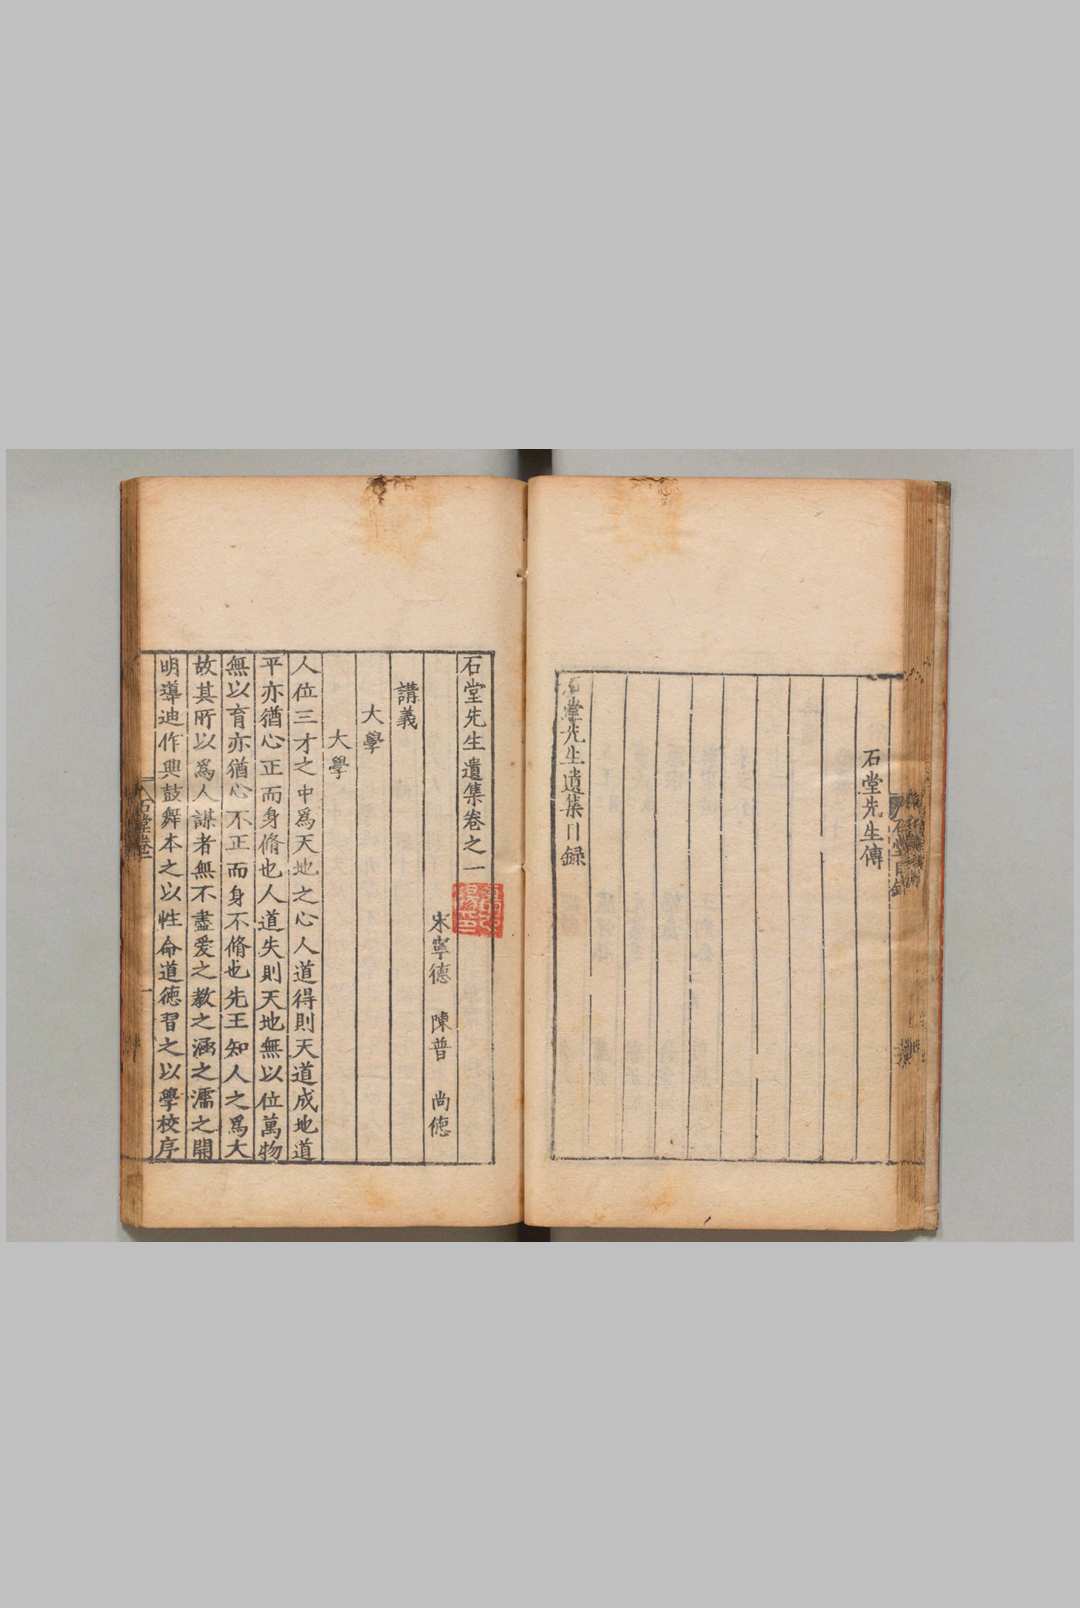 石堂先生傳
石堂先生遺集目録
石堂先生遺集卷之一
宋寧德　陳普　尚德
講義
大學
大學
人位三才之中爲天地之心人道得則天道成地道
平亦猶心正而身脩也人道失則天地無以位萬物
無以育亦猶心不正而身不脩也先王知人之爲大
故其所以爲人謀者無不盡愛之教之涵之濡之開
明導迪作興鼓舞本之以性命道德習之以學校序